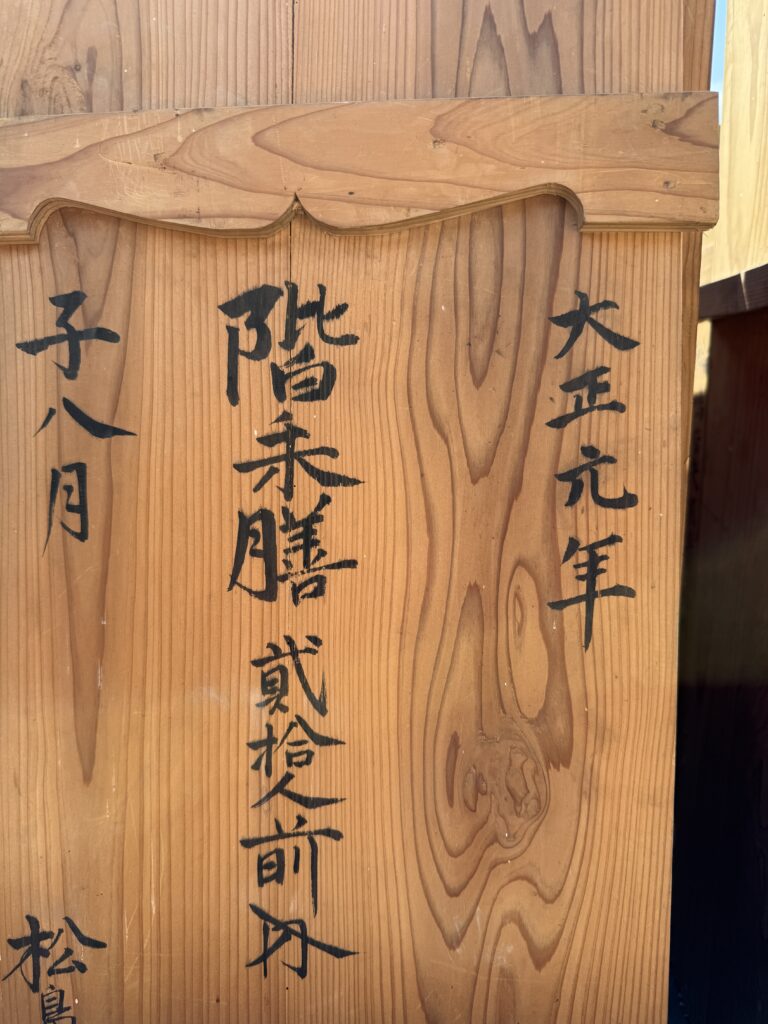 大正元年
階朱膳 貳拾人前
子八月
松島